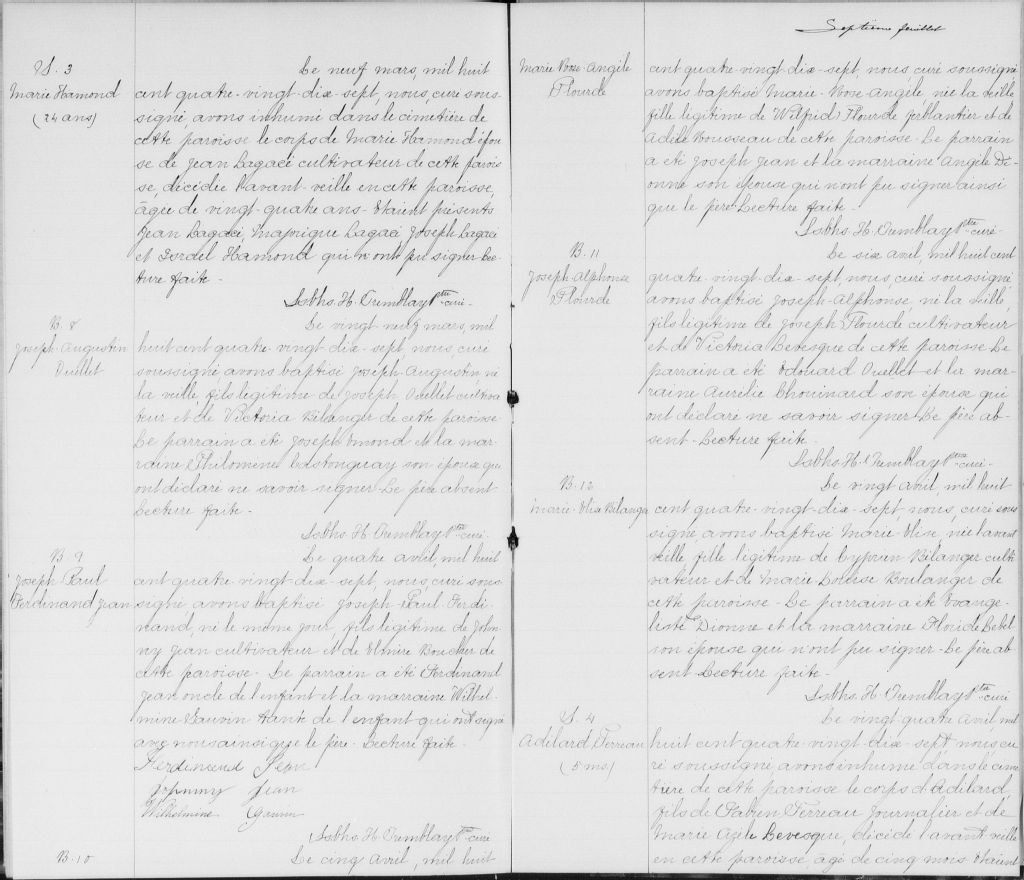 S. 3
Marie Hamond
(24 ans)
Le neuf mars, mil huit
cent quatre-vingt-dix-sept, nous, curé sous-
signé avons inhumé dans le cimetière de
cette paroisse le corps de Marie Hamond épou
se de Jean Lagacé cultivateur de cette parois
se, décédée l'avant-veille en cette paroisse,
âgée de vingt-quatre ans. Etaient présents
Jean Lagacé, Majorique Lagacé Joseph Lagacé
et Hamond qui n'ont pu signer Lec-
ture faite.
H. Tremblay Ptre curé.
B. 8
Joseph Augustin
Ouellet
Le vingt neuf mars, mil
huit cent quatre-vingt-dix-sept, nous, curé
soussigné avons baptisé Joseph-Augustin, né
la veille, fils légitime de Joseph Ouellet cultiva
teur et de Victoria Bélanger de cette paroisse
Le parrain a été Joseph Emond et la mar-
raine Philomène Castonguay son épouse qui
ont déclaré ne savoir signer Le père absent
Lecture faite.
H. Tremblay Ptre curé.
B. 9
Joseph Paul
Ferdinand Jean
Le quatre avril, mil huit
cent quatre-vingt-dix-sept, nous, curé sous
signé, avons baptisé Joseph-Paul-Ferdi-
nand, né le même jour, fils légitime de John-
ny Jean cultivateur et de Elmire Boucher de
cette paroisse. Le parrain a été Ferdinand
Jean oncle de l'enfant et la marraine Wilhel-
mine Gauvin tante de l'enfant qui ont signé
avec nous ainsi que le père. Lecture faite.
Ferdinand Jean
Johnny Jean
Wilhelmine
H. Tremblay Ptre curé
B. 10
Le cinq avril, mil huit
Septième feuillet
Marie Rose-Angèle
Plourde
cent quatre-vingt-dix-sept, nous, curé soussigné
avons baptisé Marie-Rose Angèle née la veille
fille légitime de Wilfrid Plourde ferblantier et de
Adèle Rousseau de cette paroisse. Le parrain
a été Joseph Jean et la marraine Angèle Di-
onne son épouse qui n'ont pu signer ainsi
que le père Lecture faite.
H. Tremblay Ptre curé.
B. 11
Joseph-Alphonse
Plourde
Le six avril, mil huit cent
quatre-vingt-dix-sept, nous, curé soussigné,
avons baptisé Joseph-Alphonse, né la veille,
fils légitime de Joseph Plourde cultivateur
et de Victoria Levesque de cette paroisse Le
parrain a été Edouard Ouellet et la mar-
raine Aurélie Chouinard son épouse qui
ont déclaré ne savoir signer Le père ab-
sent. Lecture faite.
H. Tremblay Ptre curé.
B. 12
Marie-Elise Bélanger
Le vingt avril, mil huit
cent quatre-vingt-dix-sept, nous, curé sous
signé, avons baptisé Marie-Elise, née l'avant
veille fille légitime de Cyprien Bélanger culti
vateur et de Marie-Louise Boulanger de
cette paroisse. Le parrain a été Evange-
liste Dionne et la marraine Floride Lebel
son épouse qui n'ont pu signer. Le père ab
sent Lecture faite.
H. Tremblay Ptre curé
S. 4
Adélard Terreau
(5 ms)
Le vingt quatre avril, mil
huit cent quatre-vingt-dix-sept nous cu
ré soussigné avons inhumé dans le cime
tière de cette paroisse le corps d'Adélard
fils de Fabien Terreau Journalier et de
Marie Levesque, décédé l'avant veille
en cette paroisse, âgé de cinq mois Etaient